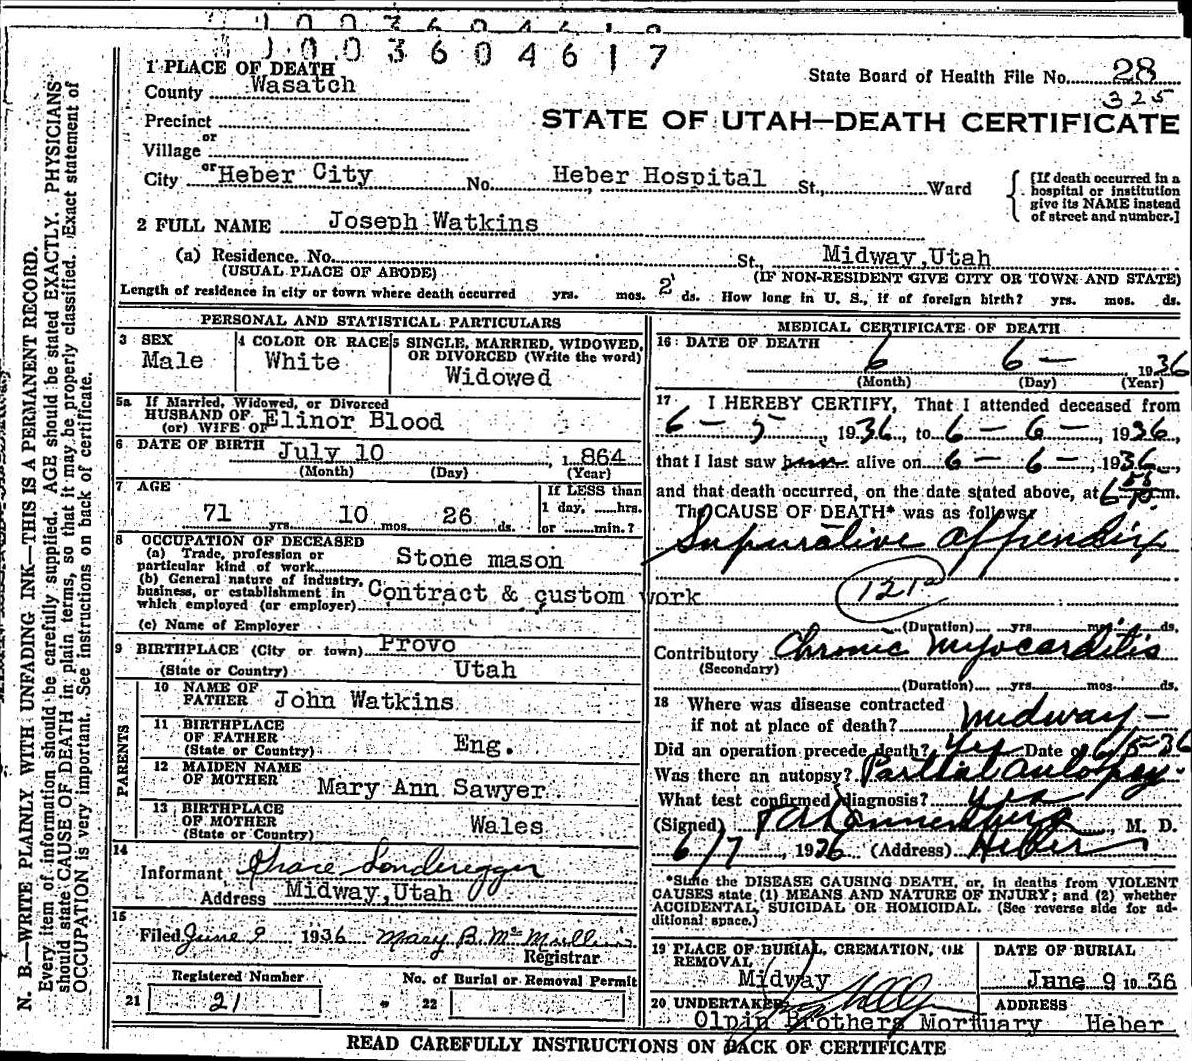 1003604617
1 PLACE OF DEATH
County Wasatch
State Board of Health File No. 28
325
Precinct
or
Village
or
City Heber City No. Heber Hospital St., Ward
STATE OF UTAH—DEATH CERTIFICATE
[If death occurred in a
hospital or institution
give its NAME instead
of street and number.]
2 FULL NAME Joseph Watkins
(a) Residence. No. St., Midway, Utah
(USUAL PLACE OF ABODE) (IF NON-RESIDENT GIVE CITY OR TOWN AND STATE)
Length of residence in city or town where death occurred yrs. mos. 2 ds. How long in U. S., if of foreign birth? yrs. mos. ds.
PERSONAL AND STATISTICAL PARTICULARS
3 SEX
Male
4 COLOR OR RACE
White
5 SINGLE, MARRIED, WIDOWED,
OR DIVORCED (Write the word)
Widowed
5a If Married, Widowed, or Divorced
HUSBAND OF Elinor Blood
(or) WIFE OF
6 DATE OF BIRTH July 10, 1864
(Month) (Day) (Year)
7 AGE
71 yrs. 10 mos. 26 ds.
If LESS than
1 day, ......hrs.
or ......min.?
8 OCCUPATION OF DECEASED
(a) Trade, profession or
particular kind of work Stone mason
(b) General nature of industry,
business, or establishment in
which employed (or employer) Contract & custom work
(c) Name of Employer
9 BIRTHPLACE (City or town) Provo
(State or Country) Utah
PARENTS
10 NAME OF
FATHER John Watkins
11 BIRTHPLACE
OF FATHER
(State or Country) Eng.
12 MAIDEN NAME
OF MOTHER Mary Ann Sawyer
13 BIRTHPLACE
OF MOTHER
(State or Country) Wales
14
Informant Grace Sonderegger
Address Midway, Utah
15
Filed June 9 1936 Mary B. McMullin
Registrar
Registered Number
21 21
No. of Burial or Removal Permit
22
MEDICAL CERTIFICATE OF DEATH
16 DATE OF DEATH
6 6 — 1936
(Month) (Day) (Year)
17 I HEREBY CERTIFY, That I attended deceased from
6 - 5, 1936, to 6 - 6 -, 1936,
that I last saw him alive on 6 - 6 -, 1936,
and that death occurred, on the date stated above, at 6 m.
The CAUSE OF DEATH* was as follows:
Supurative appendix
121a
(Duration) yrs. mos. ds.
Contributory Chronic Myocarditis
(Secondary)
(Duration) yrs. mos. ds.
18 Where was disease contracted
if not at place of death? Midway -
Did an operation precede death? Yes Date of 6/5-36
Was there an autopsy? Partial autopsy.
What test confirmed diagnosis? yes
(Signed) Dannenberg, M. D.
6/7, 1936 (Address) Heber
*State the DISEASE CAUSING DEATH, or, in deaths from VIOLENT
CAUSES state (1) MEANS AND NATURE OF INJURY; and (2) whether
ACCIDENTAL, SUICIDAL OR HOMICIDAL. (See reverse side for ad-
ditional space.)
19 PLACE OF BURIAL, CREMATION, OR
REMOVAL
Midway
DATE OF BURIAL
June 9 1936
20 UNDERTAKER
Olpin Brothers Mortuary
ADDRESS
Heber
READ CAREFULLY INSTRUCTIONS ON BACK OF CERTIFICATE
N. B.—WRITE PLAINLY, WITH UNFADING INK—THIS IS A PERMANENT RECORD.
Every item of information should be carefully supplied. AGE should be stated EXACTLY. PHYSICIANS
should state CAUSE OF DEATH in plain terms, so that it may be properly classified. Exact statement of
OCCUPATION is very important. See instructions on back of certificate.